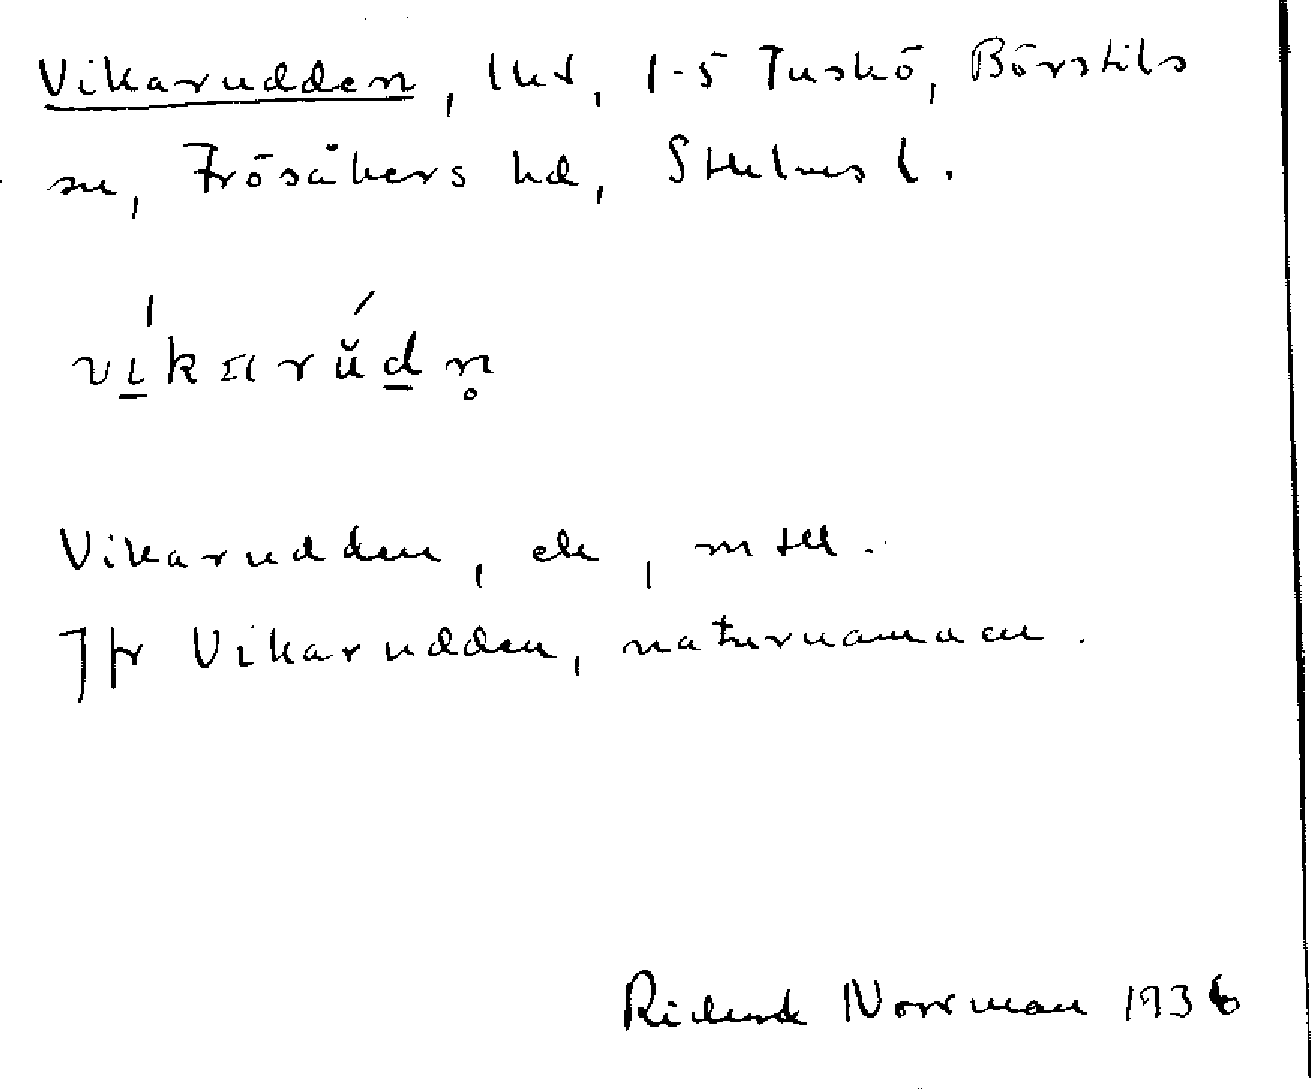 Vikarudden, lht, 1-5 Tuskö, Börstils
sn, Frösåkers hd, Sthlms l.
vikarŭdn̥
Vikarudden, ek, mtll.
Jfr Vikarudden, naturnamnen.
Rickard Norrman 1936